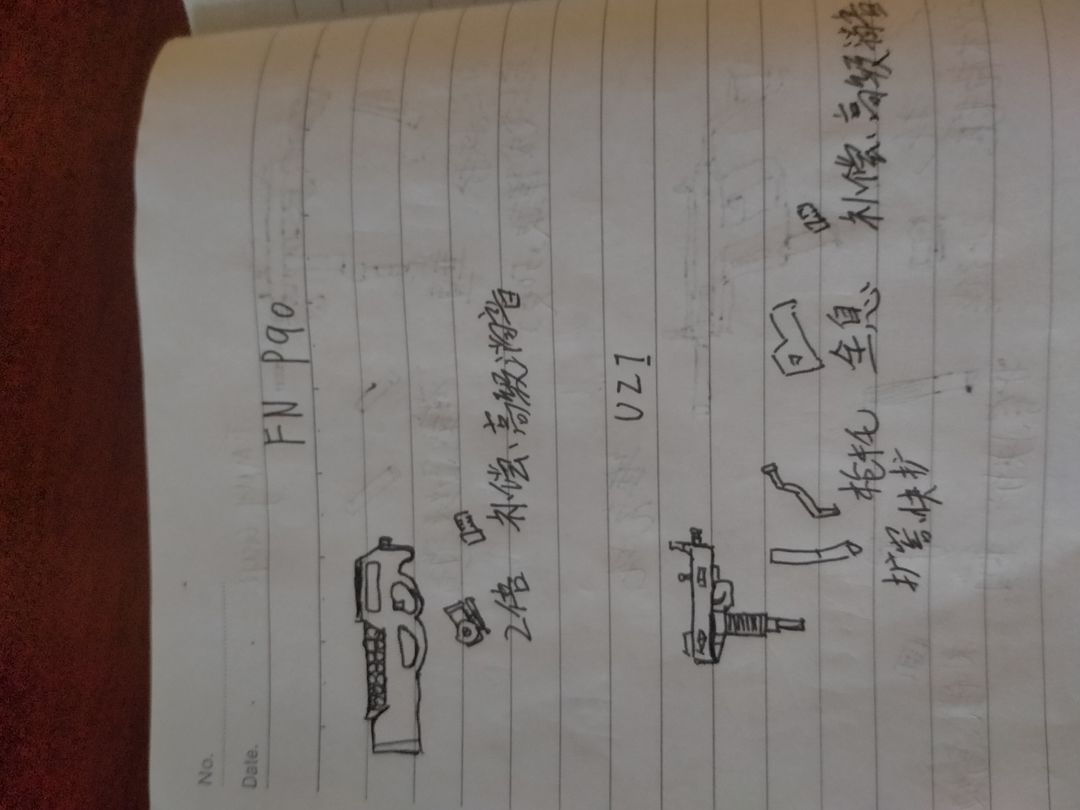 No.
Date.
FN P90
2倍 补偿、高级消音
UZI
枪托 全息 补偿、高级消音
扩容快扩